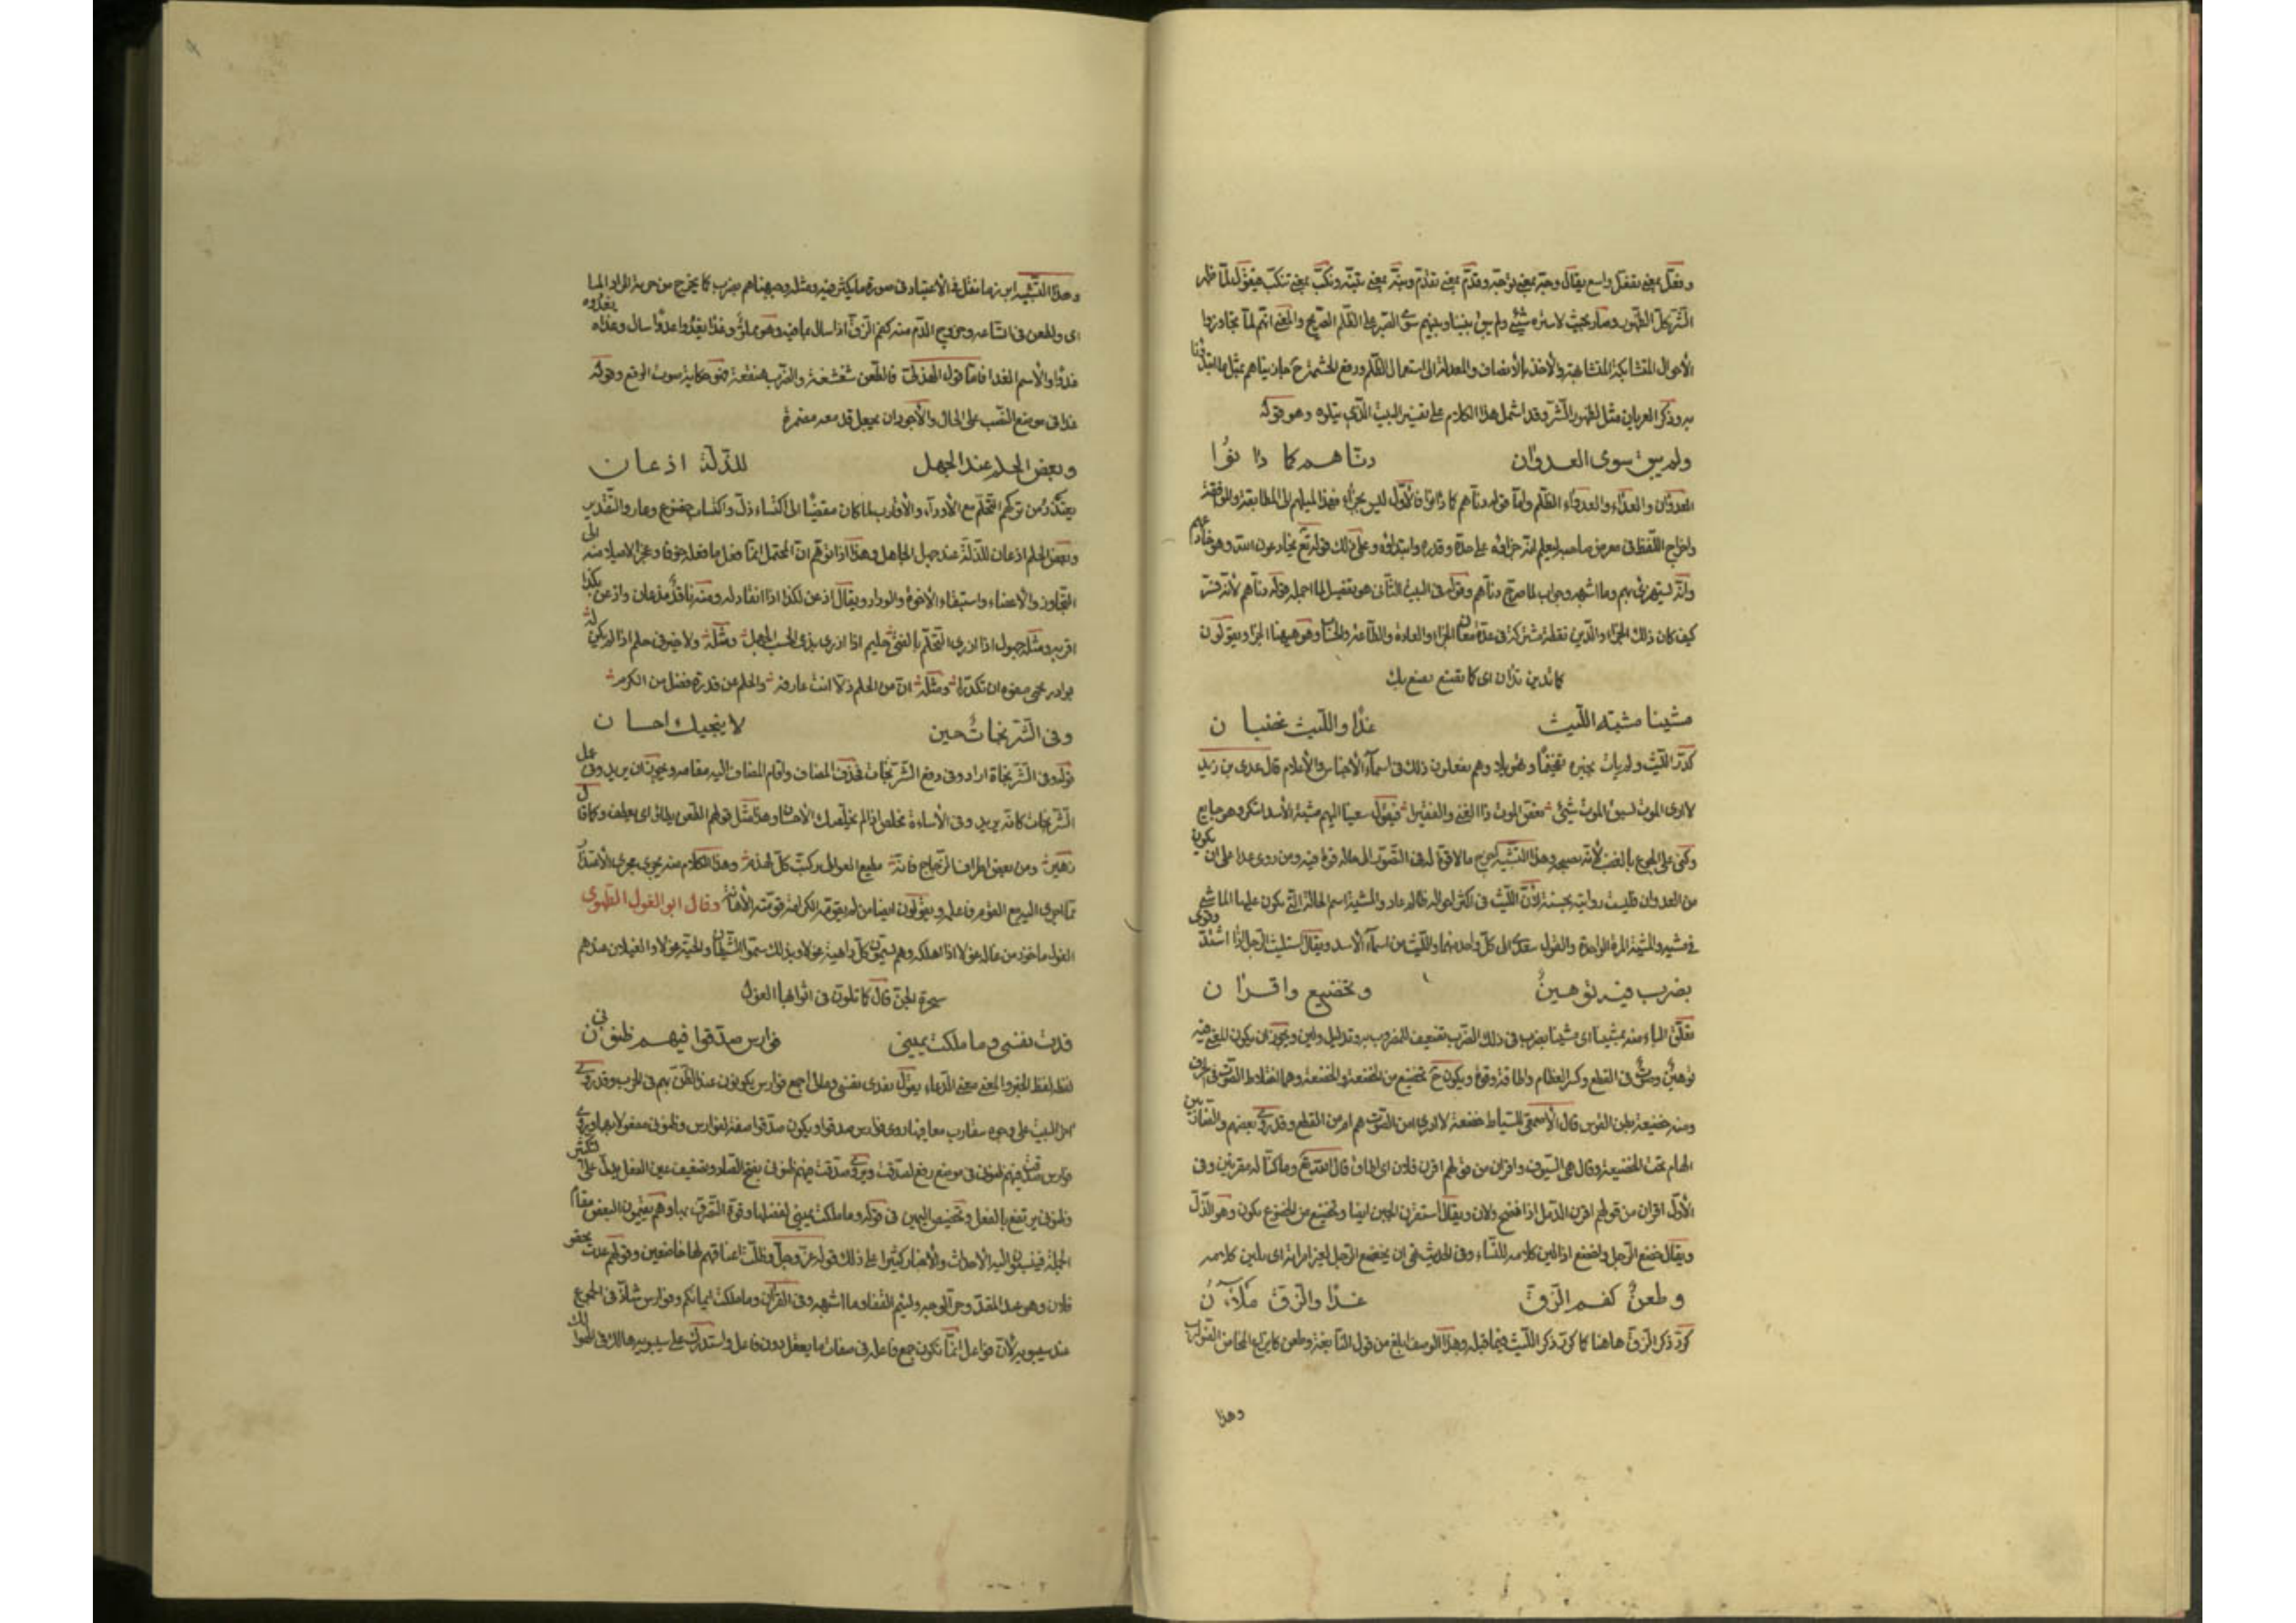 وفعّل بمعنى تفعّل واسع يقال وجّه بمعنى توجّه وقدّم بمعنى تقدّم ونبّه بمعنى تنبّه ونكّب بمعنى تنكّب فيقول لمّا ظهر
الشّرّ كلّ الظّهور وصار بحيث لا ستره شيء ولم يبق بيننا وبينهم سوى الصّبر على الظّلم الصّريح والمعنى انّهم لمّا تجاوزوا
الأحوال المتشابكة المتشابهة والأخذ بالأنصاف والمعدلة الى استعمال الظّلم ورفع الحشمة ح جازيناهم بمثل ما ابتدؤنا
به وذكر العريان مثل لظهور الشّرّ وقد اشتمل هذا الكلام على تفسير البيت الّذي يتلوه وهو قوله
ولم يبق سوى العدوان دنّاهم كما دانوا
العدوان والعداء والعدو الظّلم وامّا قوله دنّاهم كما دانوا فالأوّل ليس بجزاء فهذا لميلهم الى المطابقة والموافقة
واخراج اللّفظ في معرض صاحبه ليعلم انّه جزاؤه على حدّه وقدره وابتدائه وعلى ذلك قوله تع يخادعون الله وهو خادعهم
والله يستهزئ بهم وما اشبهه وجواب لمّا صرّح دنّاهم وقوله في البيت الثّاني هو تفصيل لما اجمله قوله دنّاهم لأنّه فسّر
كيف كان ذلك الجزاء والدّين لفظة مشتركة في عدّة معان الجزاء والعادة والطّاعة والحساب وهو هيهنا الجزاء ويقولون
كما تدين تدان اى كما تصنع يصنع بك
مشينا مشية اللّيث غدا واللّيث غضبان
كرّر اللّيث ولم يأت بضميره تفخيمًا وتهويلًا وهم يفعلون ذلك في اسمآء الأجناس والأعلام قال عدى بن زيد
لا ارى الموت يسبق الموت شيء نغّص الموت ذا الغنى والفقيرا فيقول سعينا اليهم مشية الأسد ابتكر وهو جايع
وكنى على الجوع بالغضب لأنّه يصحبه وهذا التّشبيه اخرج ما لا قوّة له في التّصوّر الى ما له قوّة فيه ومن روى عدا على ان يكون
من العدوان فليست روايته بحسنة لأنّ اللّيث في اكثر احواله ظالم عاد والمشية اسم الحالة الّتي يكون عليها الماشى
في مشيه والمشية المرة الواحدة والليث من اسمآء الأسد ويقال استليث الرّجل اذا اشتدّ وقوى
بضرب فيه توهين وتخضيع واقران
تعلّق الباء منه بمشينا اى مشينا بضرب في ذلك الضّرب تضعيف للمضروب به وتذليل ولين ويجوز ان يكون المعنى فيه
توهين وصوت في القطع وكسر العظام واطاقة وقوة ويكون ح تخضيع من الخضيعة والخضعة وهما اختلاط الصّوت في الحرب
ومنه خضيعة بطن الفرس قال الأصمعى للسّياط خضعة لا ادرى امن الصّوت هو ام من القطع وقد روى بعضهم والضاربين
الهام تحت الخضيعة وقال هي السّيوف واقران من قولهم اقرن فلان اى اطاق قال الله تع وما كنّا له مقرنين وفي
الأوّل اقران من قولهم اقرن الدّمل اذا نضج ولان ويقال استقرن الجبين ايضا وتخضيع من الخضوع يكون وهو الذّلّ
ويقال خضع الرّجل واخضع اذا لين كلامه للنّساء وفي الحديث نهى ان يخضع الرّجل لغير امراته اى يلين كلامه
وطعن كفم الزّقّ غدا والزّقّ ملآن
كرّر ذكر الزّقّ هاهنا كما كرّر ذكر اللّيث فيما قبله وهذا الوصف ابلغ من قول النّابغة وطعن كايزاع المخاض الضّوارب
وهذا
وهذا التّشبيه ابرز ما تقلّ فيه الأعتياد في صورة ما يكثر فيه ومثله وجبهناهم بضرب كما يخرج من خربة المزاد الما
اى وبطعن في اتّساعه وخروج الدّم منه كفم الزّقّ اذا سال بما فيه وهو مملوّ وغذا يغذوا غذوًا سال وغذاه يغذوه
غذوا والأسم الغذا فامّا قوله الهذلىّ فالطّعن شغشغة والضّرب هيقعة فهو حكاية صوت الوقع وقوله
غذا في موضع النّصب على الحال والأجود ان يجعل قد معه مضمرة
وبعض الحلم عند الجهل للذّلّة اذعان
يعتذر من تركهم التّحلّم مع الأودآء والأقارب لما كان مفضيًا الى اكتساء ذلّ واكتساب خضوع وعار والتّقدير
وبعض الحلم اذعان للذّلّة عند جهل الجاهل وهذا اذا توهّم انّ المحتمل انّما فعل ما فعله خوفا وعجزا لا ميلا منه الى
التّجاوز والأغضاء واستبقاء الأخوة والوداد ويقال اذعن لكذا اذا انقاد له ومنه ناقة مذعان واذعن بكذا
اقر به ومثله جهول اذا ازرى التّحلّم بالفتى حليم اذا ازرى بذى الحسب الجهل ومثله ولا خير في حلم اذا لم يكن له
بوادر تحمى صفوه ان تكدّرا ومثله انّ من الحلم ذلّا انت عارفه والحلم عن قدرة فضل من الكرم
وفي الشّرّ نجاة حين لا ينجيك احسان
قوله وفي الشّرّ نجاة اراد وفي دفع الشّرّ نجاة فحذف المضاف واقام المضاف اليه مقامه ويجوز ان يريد وفي عمل
الشّرّ نجاة كانّه يريد وفي الأساءة مخلص اذا لم يخلّصك الأحسان وهذا مثل قولهم الطّعن يظار اى يعطف وكما قال
زهير ومن يعص اطراف الزّجاج فانّه مطيع العوالى ركّبت كلّ لهذم وهذا الكلام منه يجرى مجرى الأعتذار
ممّا اجرى اليه مع القوم فاعله ويقولون ايضا من لم تقوّمه الكرامة قوّمته الأهانة وقال ابو الغول الطّهوى
الغول ماخوذ من غاله غولا اذا اهلكه وهم يسمّون كلّ داهية غولا وبذلك سمّوا الشّيطان والحيّة غولا والغيلان عندهم
سحرة الجنّ قال كما تلوّن في اثوابها الغول
فدت نفسى وما ملكت يمينى فوارس صدّقوا فيهم ظنونى
لفظه لفظ الخبر والمعنى معنى الدّعاء يقول تفدى نفسى ومالى اجمع فوارس يكونون عند الظّنّ بهم في الحرب وقد روى
هذا البيت على وجوه متقارب معانيها روى فوارس صدقوا ويكون صدقوا صفة لفوارس وظنونى مفعولا بها ويروى
فوارس صدّقت فيهم ظنونى في موضع رفع لصدّقت ويروى صدقت فيهم ظنونى بفتح الصّاد وتضعيف عين الفعل يدلّ على تكثير
وظنونى يرتفع بالفعل وتخصيص اليمين في قوله وما ملكت يمينى لفضلها وقوة التّصرّف بها وهم يقيمون البعض مقام
الجملة فينسبون اليه الأحداث والأخبار كثيرا على ذلك قوله عزّ وجلّ فظلّت اعناقهم لها خاضعين وقولهم عذت بحقو
فلان وهو عبد المقذّ وحرّ الوجه ولئيم القفا وما اشبهه وفي القرآن وما ملكت ايمانكم وفوارس شاذّ في الجموع
عند سيبويه لأنّ فواعل انّما تكون جمع فاعلة في صفات ما يعقل دون فاعل واستدرك على سيبويه هالك في الهوالك